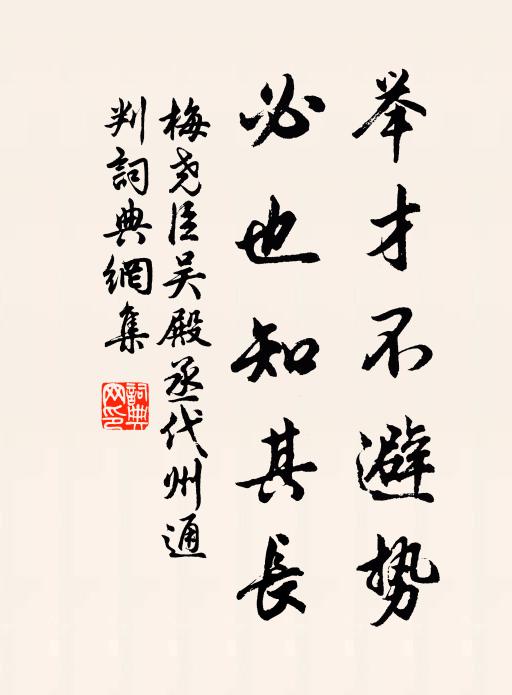 举才不避势
必也知其長
梅尧臣吴殿丞代州通
判詞典網集
詞典网印